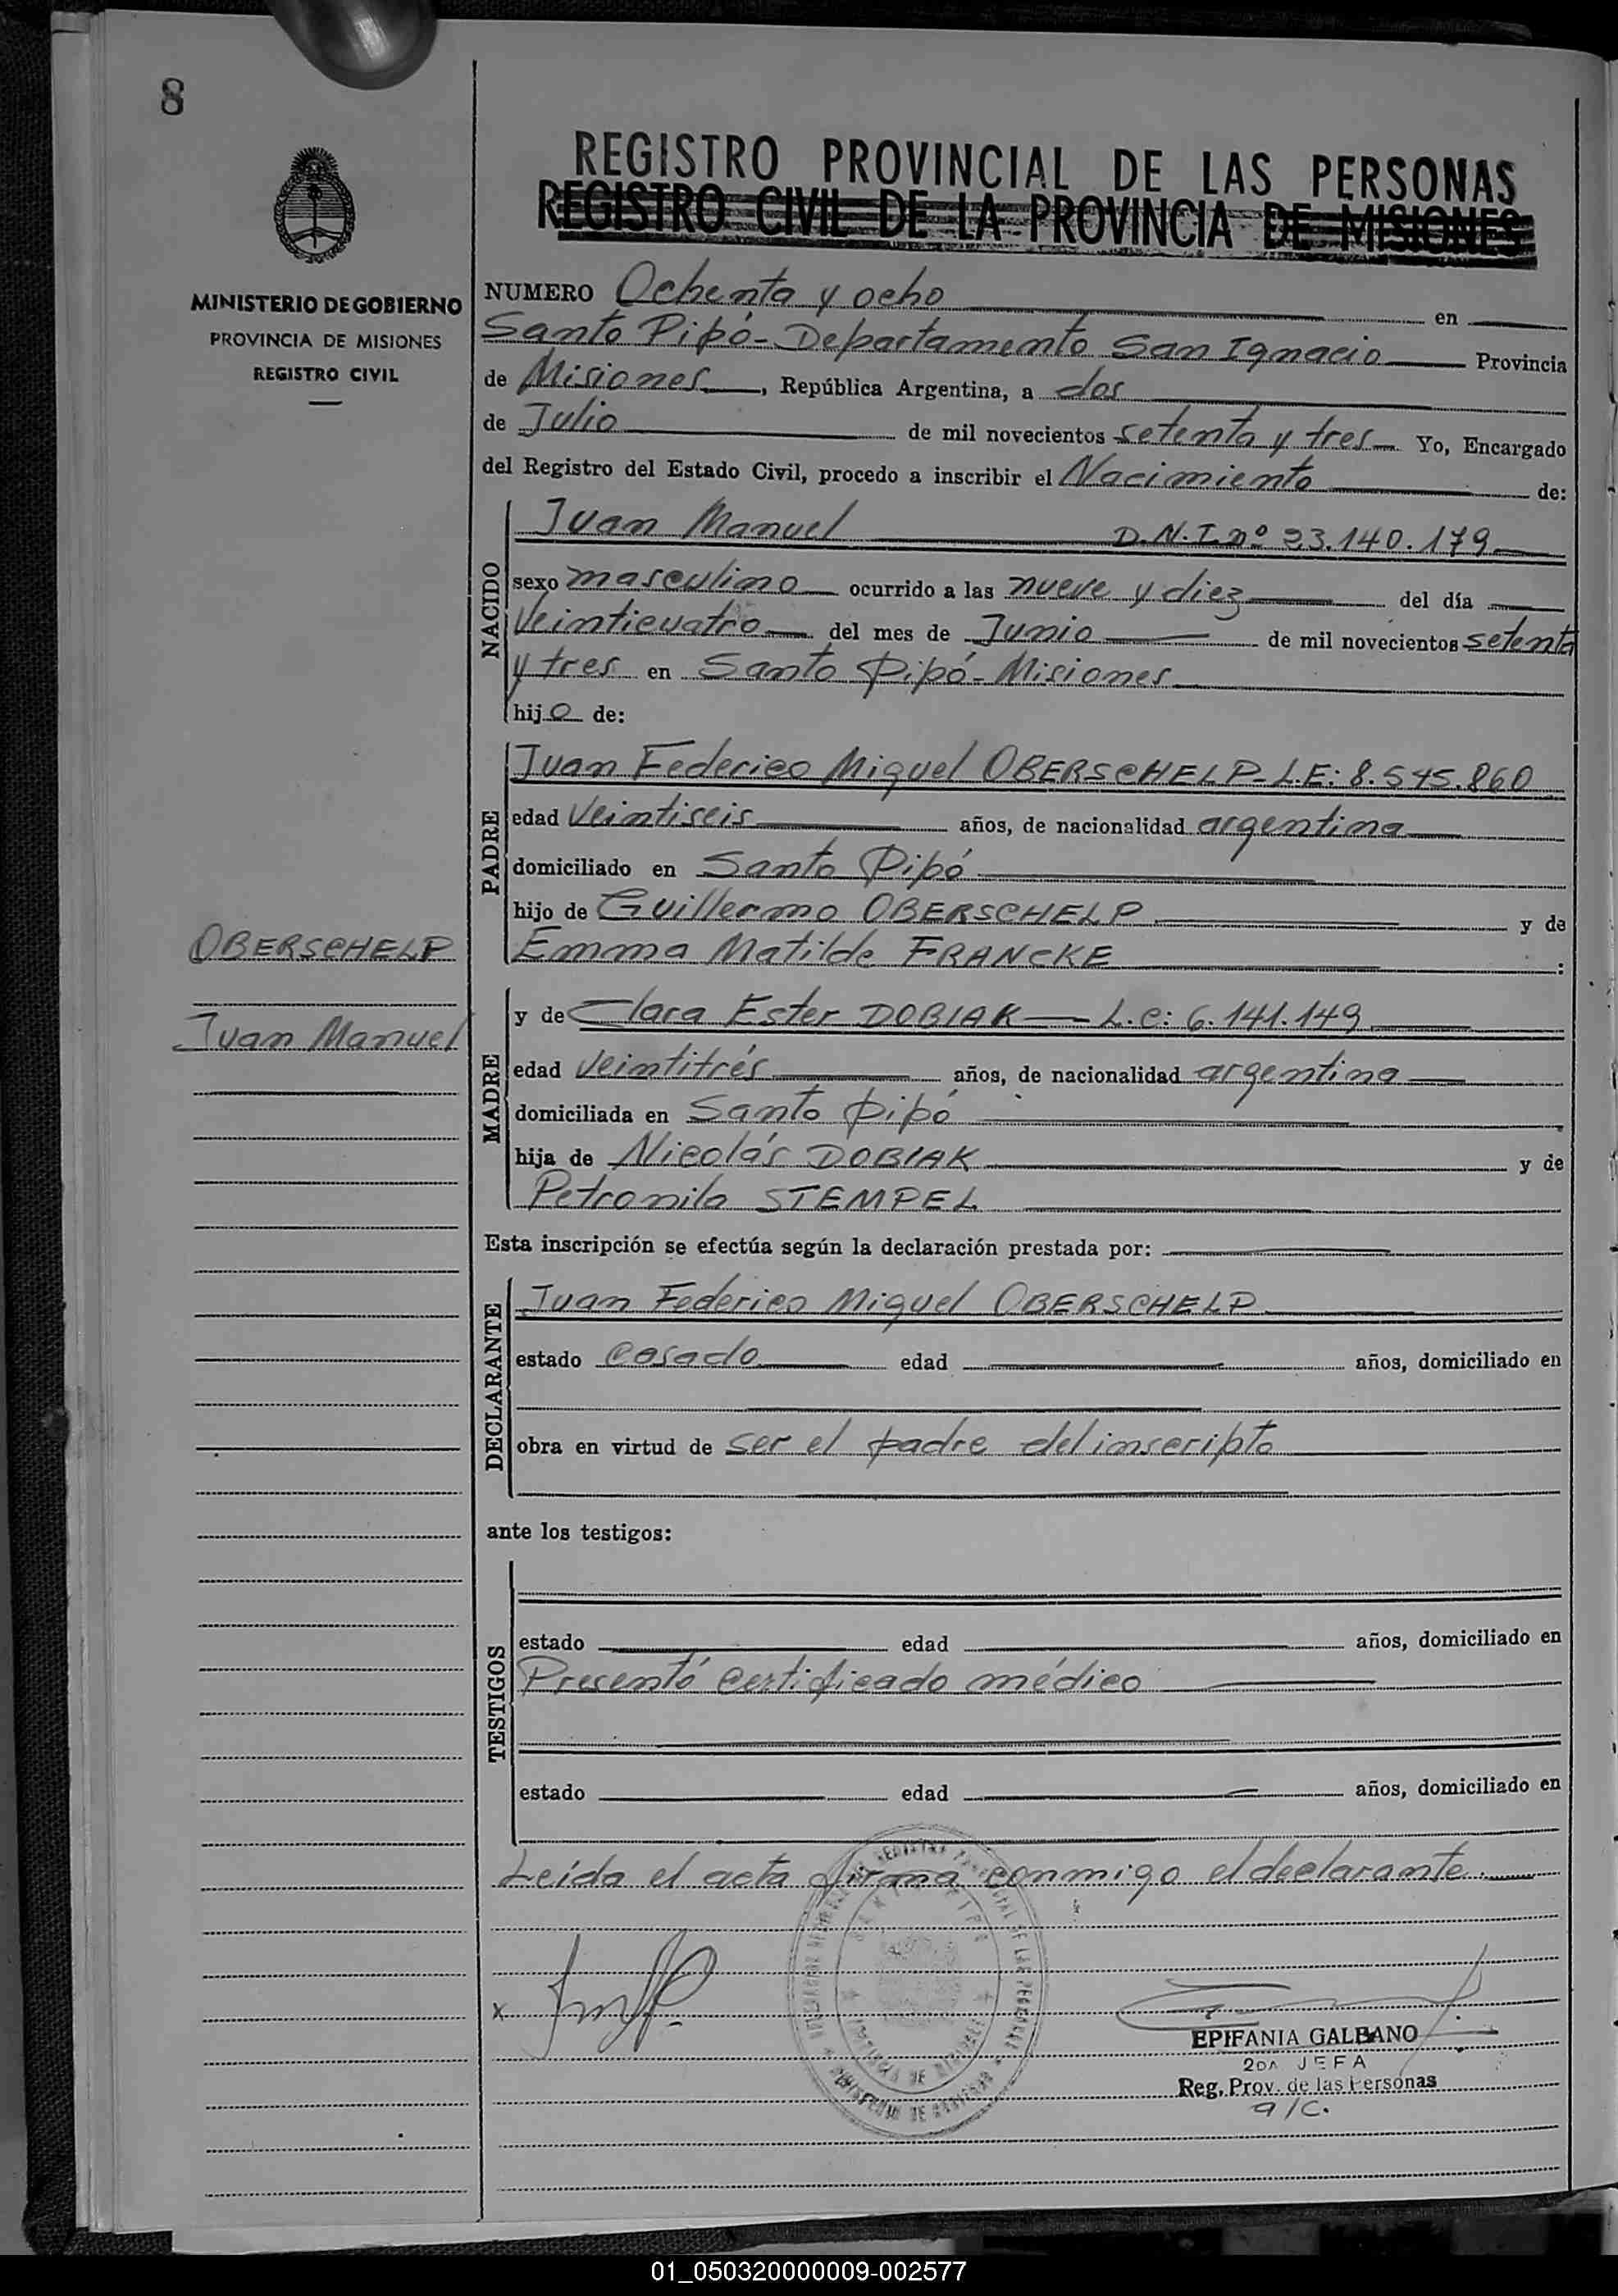 8
MINISTERIO DE GOBIERNO
PROVINCIA DE MISIONES
REGISTRO CIVIL
REGISTRO PROVINCIAL DE LAS PERSONAS
REGISTRO CIVIL DE LA PROVINCIA DE MISIONES
NUMERO Ochenta y ocho en
Santo Pipó - Departamento San Ignacio Provincia
de Misiones, República Argentina, a dos
de Julio de mil novecientos setenta y tres Yo, Encargado
del Registro del Estado Civil, procedo a inscribir el Nacimiento de:
NACIDO
Juan Manuel D.N.I. nº 23.140.179
sexo masculino ocurrido a las nueve y diez del día
Veinticuatro del mes de Junio de mil novecientos setenta
y tres en Santo Pipó - Misiones
hijo de:
PADRE
Juan Federico Miguel OBERSCHELP - L.E: 8.545.860
edad Veintiseis años, de nacionalidad argentina
domiciliado en Santo Pipó
hijo de Guillermo OBERSCHELP y de
Emma Matilde FRANCKE :
OBERSCHELP
Juan Manuel
MADRE
y de Clara Ester DOBIAK — L.C: 6.141.149
edad Veintitrés años, de nacionalidad argentina
domiciliada en Santo Pipó
hija de Nicolás DOBIAK y de
Petronila STEMPEL
Esta inscripción se efectúa según la declaración prestada por:
DECLARANTE
Juan Federico Miguel OBERSCHELP
estado casado edad años, domiciliado en
obra en virtud de ser el padre del inscripto
ante los testigos:
TESTIGOS
estado edad años, domiciliado en
Presentó certificado médico
estado edad años, domiciliado en
Leída el acta firma conmigo el declarante.
x
EPIFANIA GALEANO
2DA JEFA
Reg. Prov. de las Personas
a/c.
01_050320000009-002577